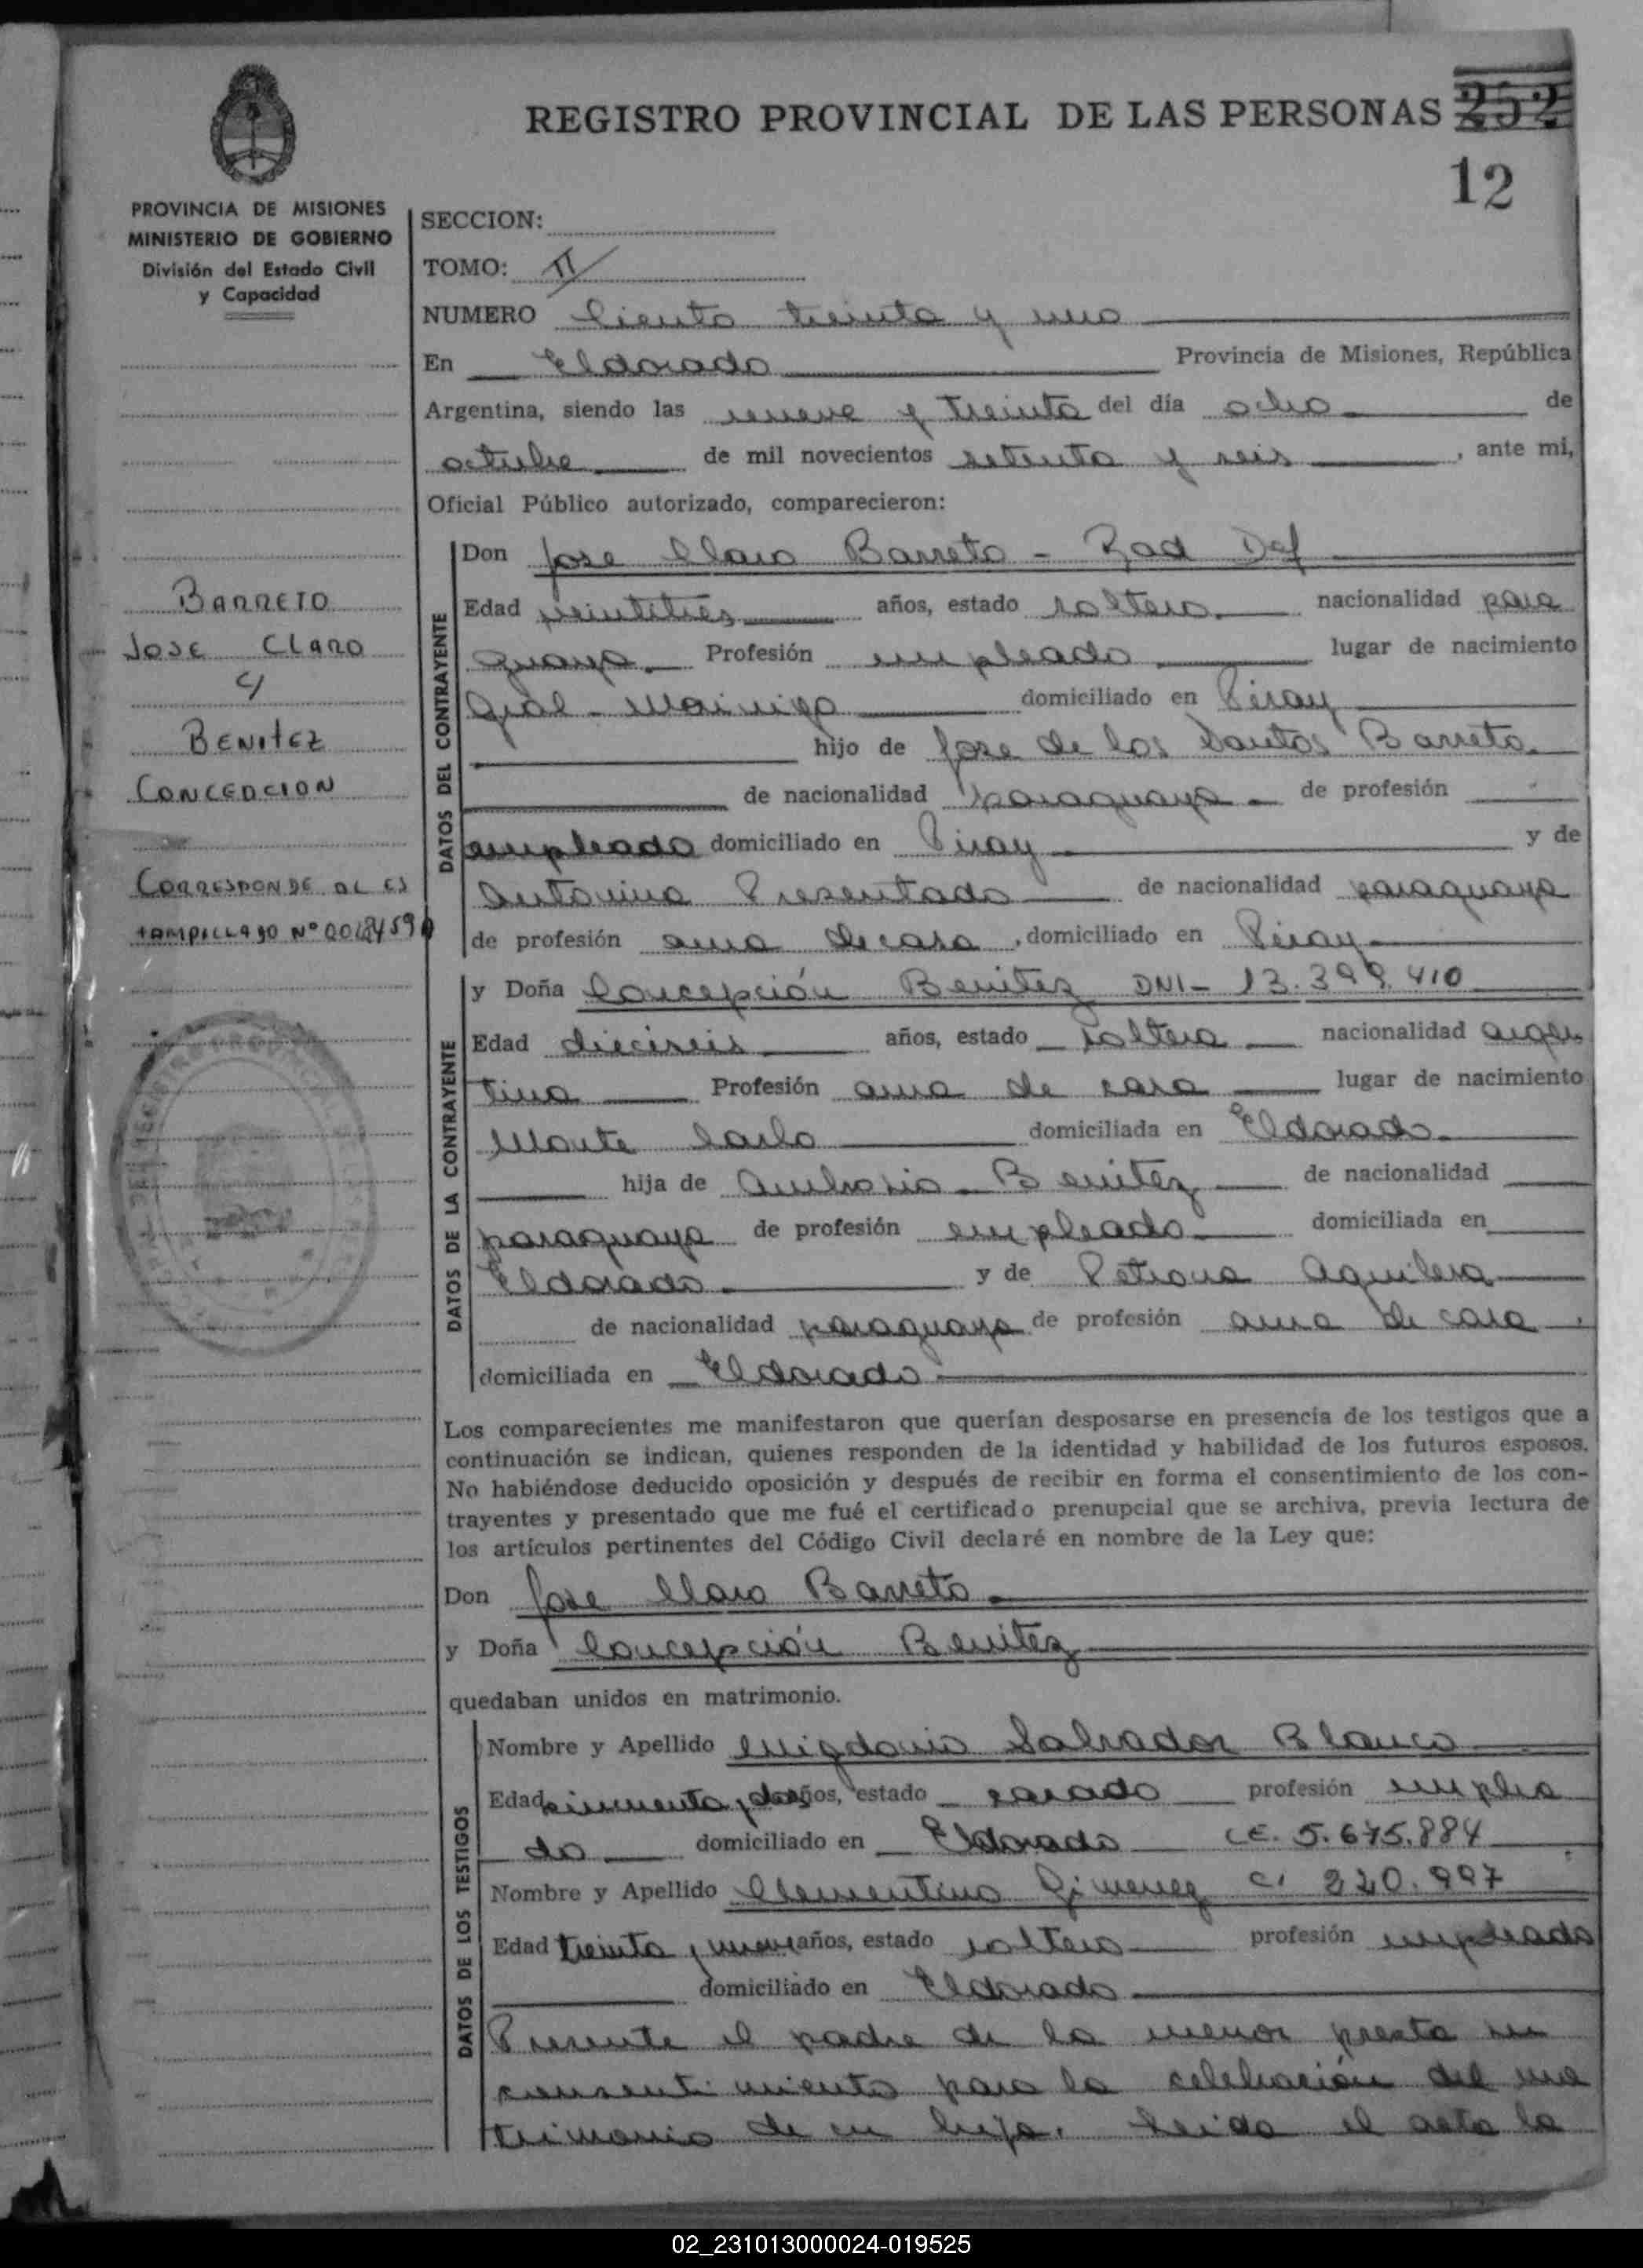 REGISTRO PROVINCIAL DE LAS PERSONAS 252
12
PROVINCIA DE MISIONES
MINISTERIO DE GOBIERNO
División del Estado Civil
y Capacidad
BARRETO
JOSE CLARO
c/
BENITEZ
CONCEPCION
CORRESPONDE AL ES
TAMPILLADO Nº
SECCION:
TOMO: II
NUMERO Ciento treinta y uno
En Eldorado Provincia de Misiones, República
Argentina, siendo las nueve y treinta del día ocho de
octubre de mil novecientos setenta y seis, ante mi,
Oficial Público autorizado, comparecieron:
DATOS DEL CONTRAYENTE
Don Jose Claro Barreto - Rad Def
Edad veintitres años, estado soltero. nacionalidad para
guaya. Profesión empleado lugar de nacimiento
Gral - Morinigo domiciliado en Piray
hijo de Jose de los Santos Barreto.
de nacionalidad paraguaya. de profesión
empleado domiciliado en Piray y de
Antonina Presentado de nacionalidad paraguaya
de profesión ama de casa, domiciliado en Piray.
DATOS DE LA CONTRAYENTE
y Doña Concepción Benitez DNI- 13.399.410
Edad dieciseis años, estado soltera nacionalidad argen
tina Profesión ama de casa lugar de nacimiento
Monte Carlo domiciliada en Eldorado.
hija de Ambrosio - Benitez de nacionalidad
paraguaya de profesión empleado. domiciliada en
Eldorado. y de Petrona Aguilera
de nacionalidad paraguaya de profesión ama de casa,
domiciliada en Eldorado.
Los comparecientes me manifestaron que querían desposarse en presencia de los testigos que a
continuación se indican, quienes responden de la identidad y habilidad de los futuros esposos.
No habiéndose deducido oposición y después de recibir en forma el consentimiento de los con-
trayentes y presentado que me fué el certificado prenupcial que se archiva, previa lectura de
los artículos pertinentes del Código Civil declaré en nombre de la Ley que:
Don Jose Claro Barreto.
y Doña Concepción Benitez
quedaban unidos en matrimonio.
DATOS DE LOS TESTIGOS
Nombre y Apellido Migdonio Salvador Blanco
Edad cincuenta y dos años, estado casado profesión emplea
do domiciliado en Eldorado CE. 5.675.884
Nombre y Apellido Clementino Gimenez CI 220.997
Edad treinta y nueve años, estado soltero profesión empleado
domiciliado en Eldorado.
Presente el padre de la menor presta su
consentimiento para la celebración del ma
trimonio de su hija. Leida el acta la
02_231013000024-019525